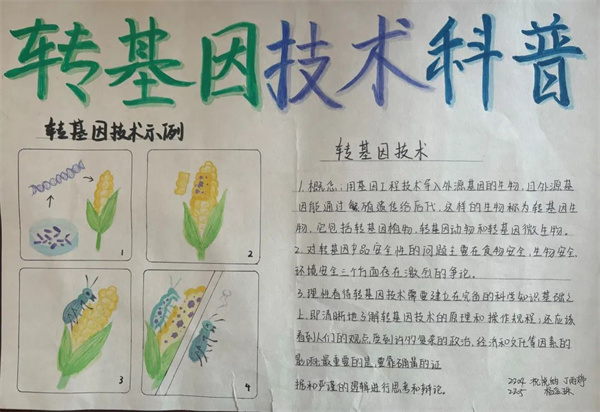 转基因技术科普
转基因技术示例
1
2
3
4
转基因技术
1.概念:用基因工程技术导入外源基因的生物,且外源基
因能通过繁殖遗传给后代,这样的生物称为转基因生
物,它包括转基因植物,转基因动物和转基因微生物。
2.对转基因产品安全性的问题主要在食物安全,生物安全,
环境安全三个方面存在激烈的争论。
3.理性看待转基因技术需要建立在完备的科学知识基础之
上,即清晰地了解转基因技术的原理和操作规程;还应该
看到人们的观点受到许多复杂的政治,经济和文化等因素的
影响;最重要的是,要靠确凿的证
据和严谨的逻辑进行思考和辩论。
2204
2205